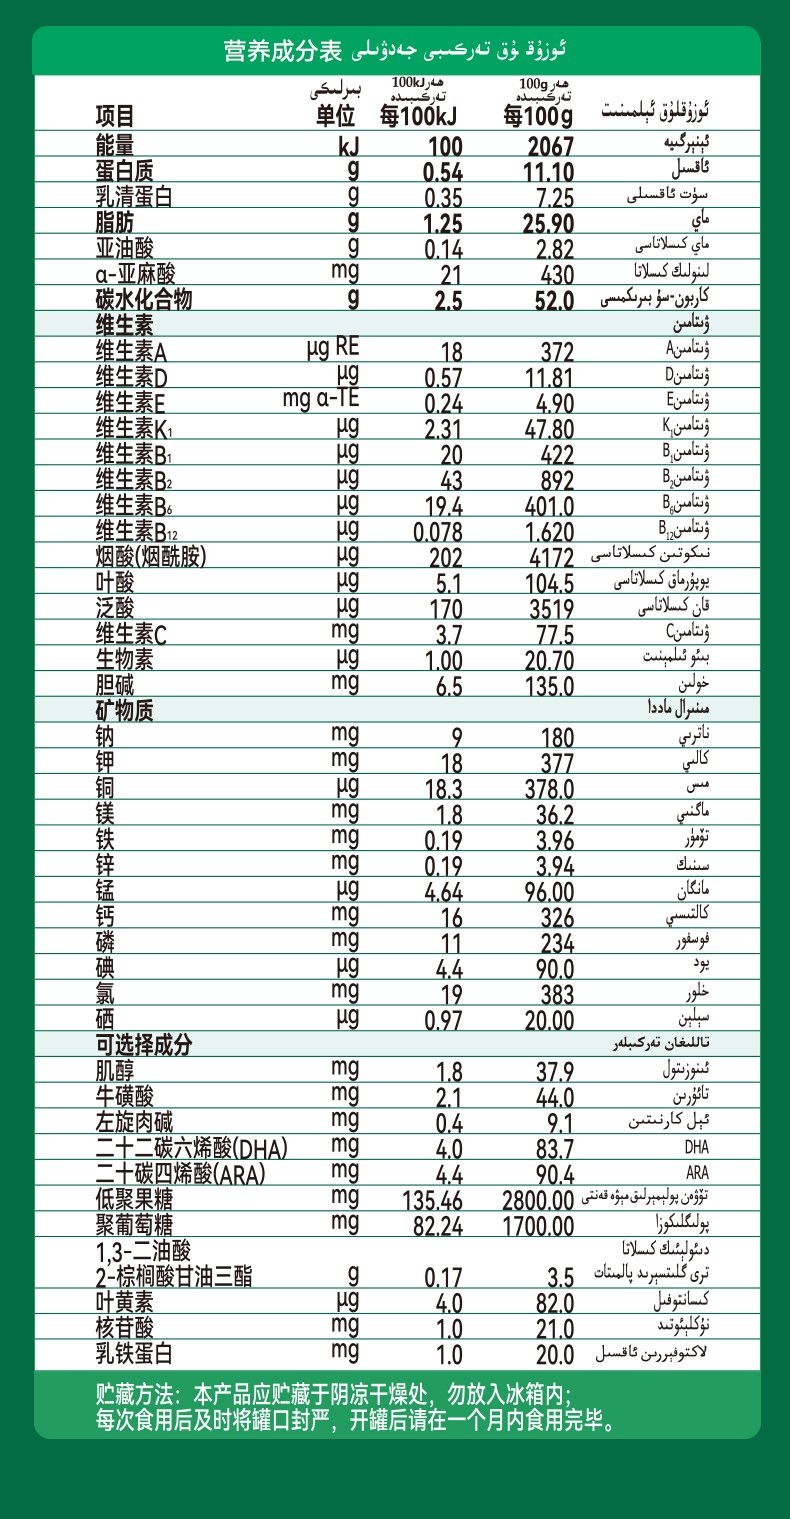 营养成分表 ئوزۇقلۇق تەركىبى جەدۋىلى
项目 بىرلىكى 单位 ھەر100kJ تەركىبىدە 每100kJ ھەر100g تەركىبىدە 每100g ئوزۇقلۇق ئېلمىنىت
能量 kJ 100 2067 ئېنېرگىيە
蛋白质 g 0.54 11.10 ئاقسىل
乳清蛋白 g 0.35 7.25 سۈت ئاقسىلى
脂肪 g 1.25 25.90 ماي
亚油酸 g 0.14 2.82 ماي كىسلاتاسى
α-亚麻酸 mg 21 430 لىنولىك كىسلاتا
碳水化合物 g 2.5 52.0 كاربون-سۇ بىرىكمىسى
维生素 ۋىتامىن
维生素A μg RE 18 372 ۋىتامىنA
维生素D μg 0.57 11.81 ۋىتامىنD
维生素E mg α-TE 0.24 4.90 ۋىتامىنE
维生素K₁ μg 2.31 47.80 ۋىتامىنK₁
维生素B₁ μg 20 422 ۋىتامىنB₁
维生素B₂ μg 43 892 ۋىتامىنB₂
维生素B₆ μg 19.4 401.0 ۋىتامىنB₆
维生素B₁₂ μg 0.078 1.620 ۋىتامىنB₁₂
烟酸(烟酰胺) μg 202 4172 نىكوتىن كىسلاتاسى
叶酸 μg 5.1 104.5 يوپۇرماق كىسلاتاسى
泛酸 μg 170 3519 قان كىسلاتاسى
维生素C mg 3.7 77.5 ۋىتامىنC
生物素 μg 1.00 20.70 بىئو ئىلمېنىت
胆碱 mg 6.5 135.0 خولىن
矿物质 مىنىرال ماددا
钠 mg 9 180 ناترىي
钾 mg 18 377 كالىي
铜 μg 18.3 378.0 مىس
镁 mg 1.8 36.2 ماگنىي
铁 mg 0.19 3.96 تۆمۈر
锌 mg 0.19 3.94 سىنىك
锰 μg 4.64 96.00 مانگان
钙 mg 16 326 كالتىسىي
磷 mg 11 234 فوسفور
碘 μg 4.4 90.0 يود
氯 mg 19 383 خلور
硒 μg 0.97 20.00 سېلېن
可选择成分 تاللىغان تەركىبلەر
肌醇 mg 1.8 37.9 ئىنوزىتول
牛磺酸 mg 2.1 44.0 تائۇرىن
左旋肉碱 mg 0.4 9.1 ئېل كارنىتىن
二十二碳六烯酸(DHA) mg 4.0 83.7 DHA
二十碳四烯酸(ARA) mg 4.4 90.4 ARA
低聚果糖 mg 135.46 2800.00 تۆۋەن پولىمېرلىق مېۋە قەنتى
聚葡萄糖 mg 82.24 1700.00 پولىگلىكوزا
1,3-二油酸 دىئولېئىك كىسلاتا
2-棕榈酸甘油三酯 g 0.17 3.5 ترى گلىتسېرىد پالمىتات
叶黄素 μg 4.0 82.0 كسانتوفىل
核苷酸 mg 1.0 21.0 نۇكلېئوتىد
乳铁蛋白 mg 1.0 20.0 لاكتوفېررىن ئاقسىل
贮藏方法：本产品应贮藏于阴凉干燥处，勿放入冰箱内；
每次食用后及时将罐口封严，开罐后请在一个月内食用完毕。